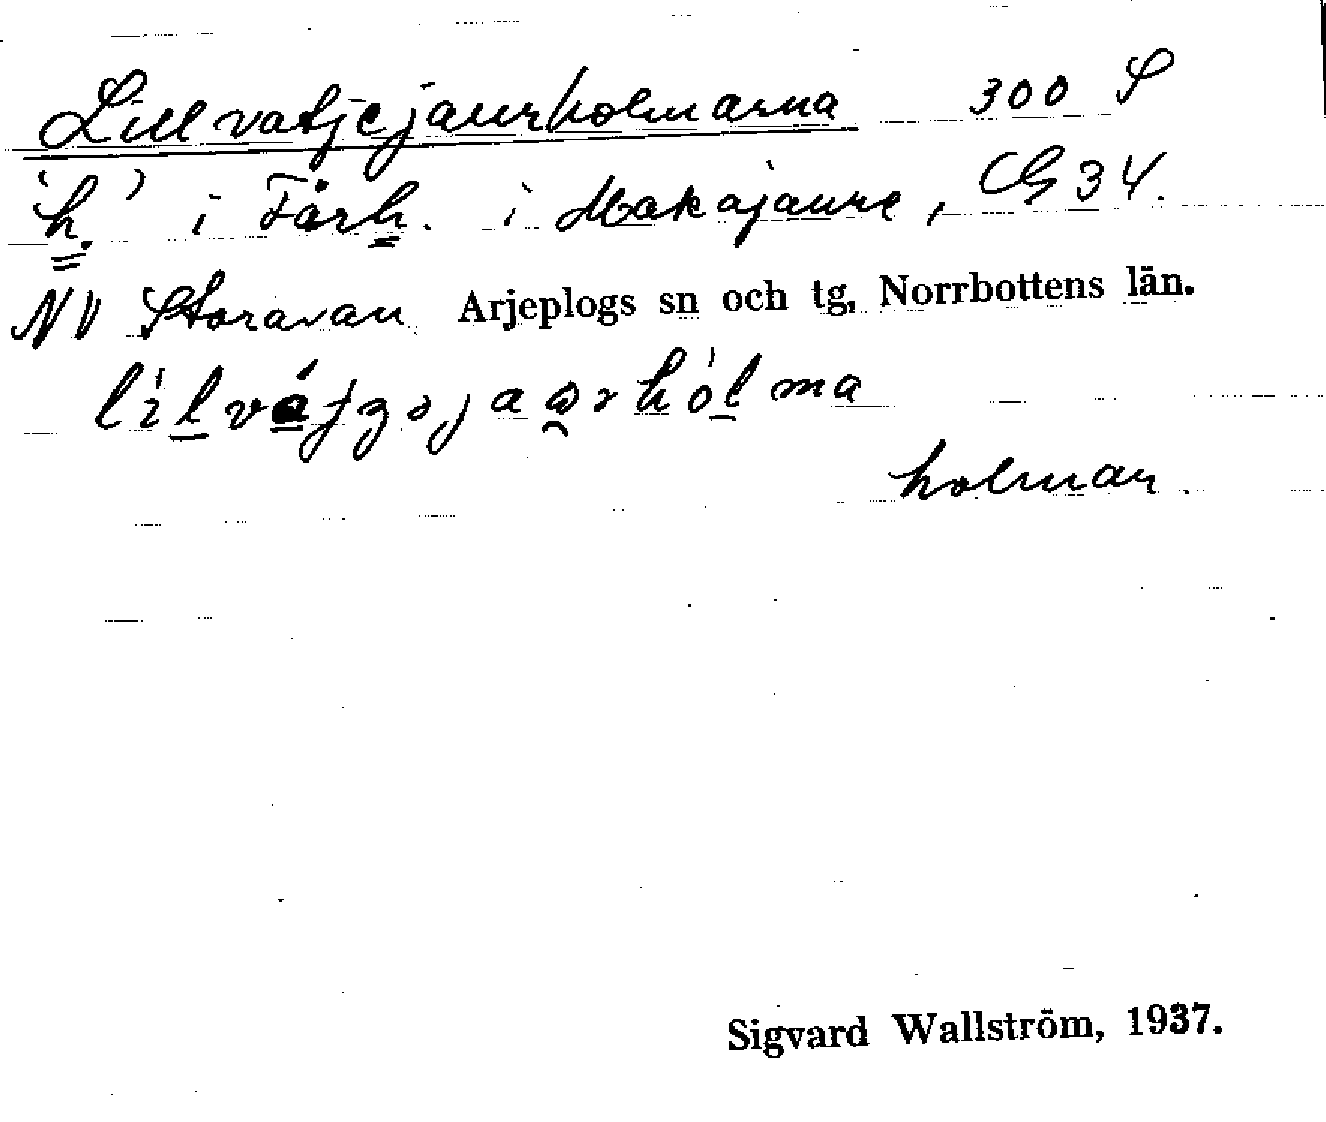 Lillvatjejaurholmarna 300 S
'h.' i Fårh. i Makajaure, CG 34.
NV Storavan Arjeplogs sn och tg, Norrbottens län.
holmar.
Sigvard Wallström, 1937.